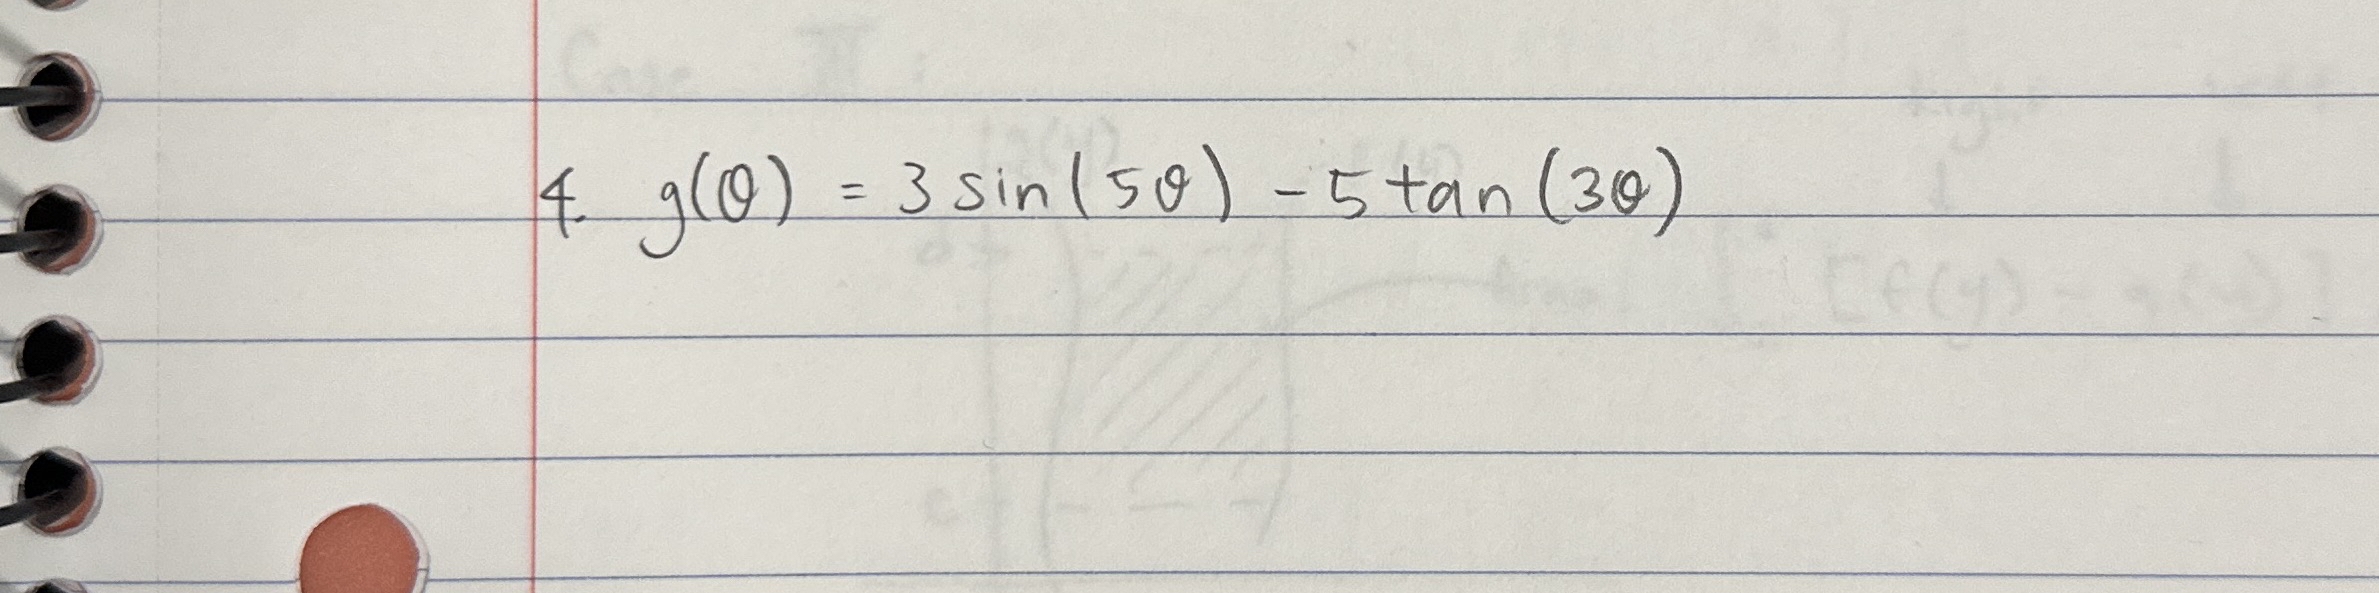 4. g(θ) = 3 sin(5θ) - 5 tan(3θ)